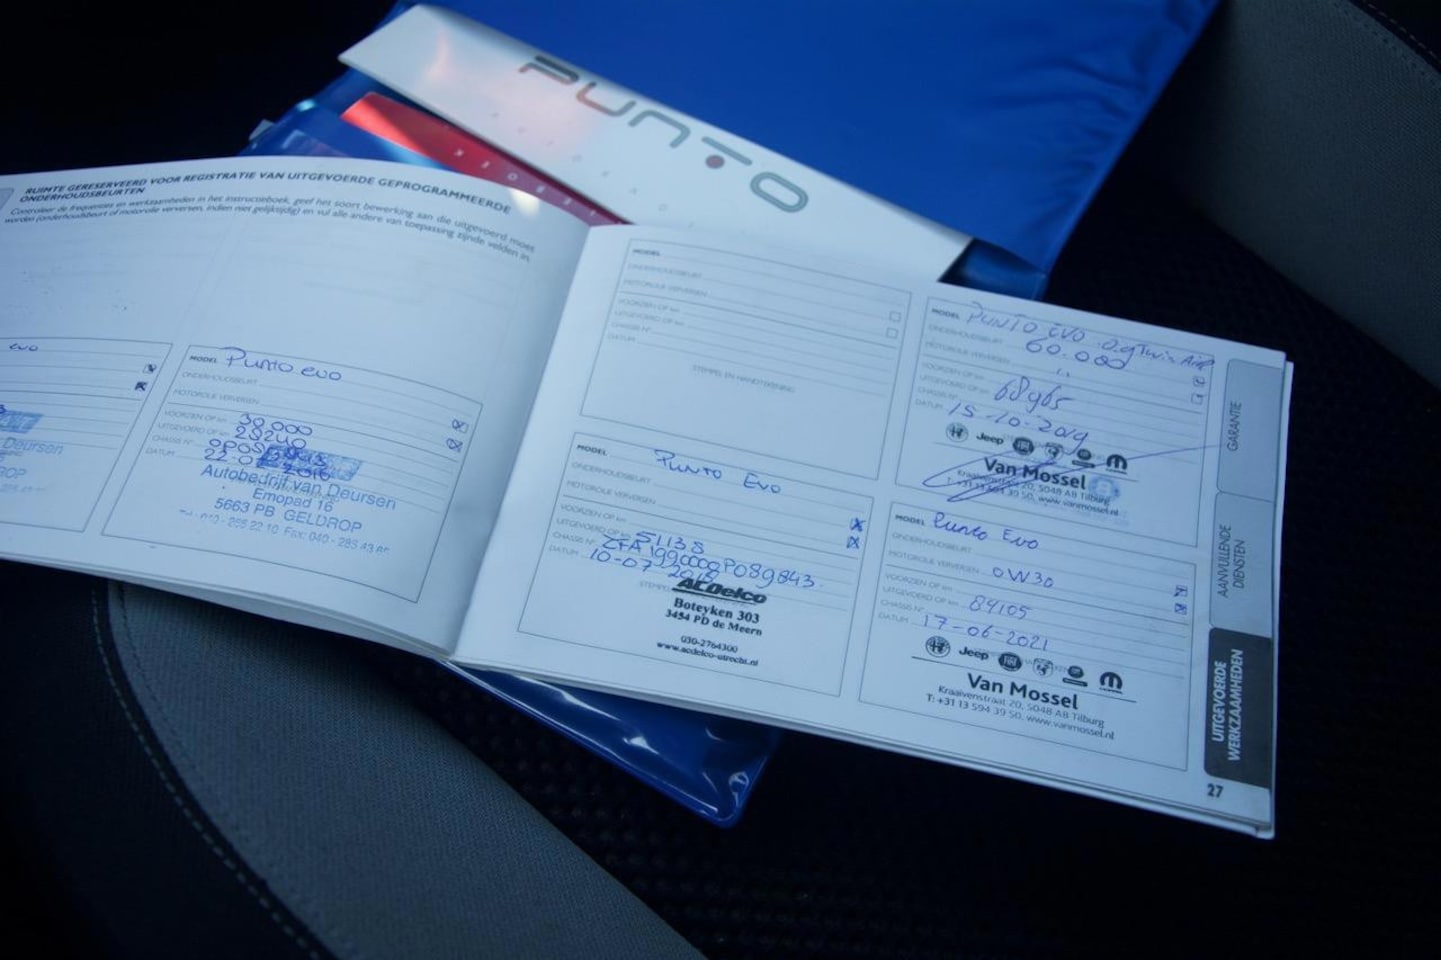 PUNTO
RUIMTE GERESERVEERD VOOR REGISTRATIE VAN UITGEVOERDE GEPROGRAMMEERDE
ONDERHOUDSBEURTEN
Controleer de frequenties en werkzaamheden in het instructieboek, geef het soort bewerking aan die uitgevoerd moet
worden (onderhoudsbeurt of motorolie verversen, indien niet gelijktijdig) en vul alle andere van toepassing zijnde velden in.
evo
Deursen
MODEL Punto evo
ONDERHOUDSBEURT
MOTOROLIE VERVERSEN
VOORZIEN OP km 30.000
UITGEVOERD OP km 29240
CHASSIS N°
DATUM
Autobedrijf van Deursen
Emopad 16
5663 PB GELDROP
MODEL
ONDERHOUDSBEURT
MOTOROLIE VERVERSEN
VOORZIEN OP km
UITGEVOERD OP km
CHASSIS N°
DATUM
STEMPEL EN HANDTEKENING
MODEL Punto Evo
ONDERHOUDSBEURT
MOTOROLIE VERVERSEN
VOORZIEN OP km
UITGEVOERD OP km 51135
CHASSIS N° ZFA1990000P089843.
DATUM 10-07-2018
ACDelco
Boteyken 303
3454 PD de Meern
030-2764300
www.acdelco-utrecht.nl
MODEL PUNTO EVO 0.9 Twin Air
ONDERHOUDSBEURT 60.000
MOTOROLIE VERVERSEN
VOORZIEN OP km
UITGEVOERD OP km 68965
CHASSIS N°
DATUM 15-10-2019
Jeep
Van Mossel
Kraaivenstraat 20, 5048 AB Tilburg
T: +31 13 594 39 50, www.vanmossel.nl
MODEL Punto Evo
ONDERHOUDSBEURT
MOTOROLIE VERVERSEN 0W30
VOORZIEN OP km
UITGEVOERD OP km 84105
CHASSIS N°
DATUM 17-06-2021
Jeep
Van Mossel
Kraaivenstraat 20, 5048 AB Tilburg
T: +31 13 594 39 50, www.vanmossel.nl
GARANTIE
AANVULLENDE
DIENSTEN
UITGEVOERDE
WERKZAAMHEDEN
27